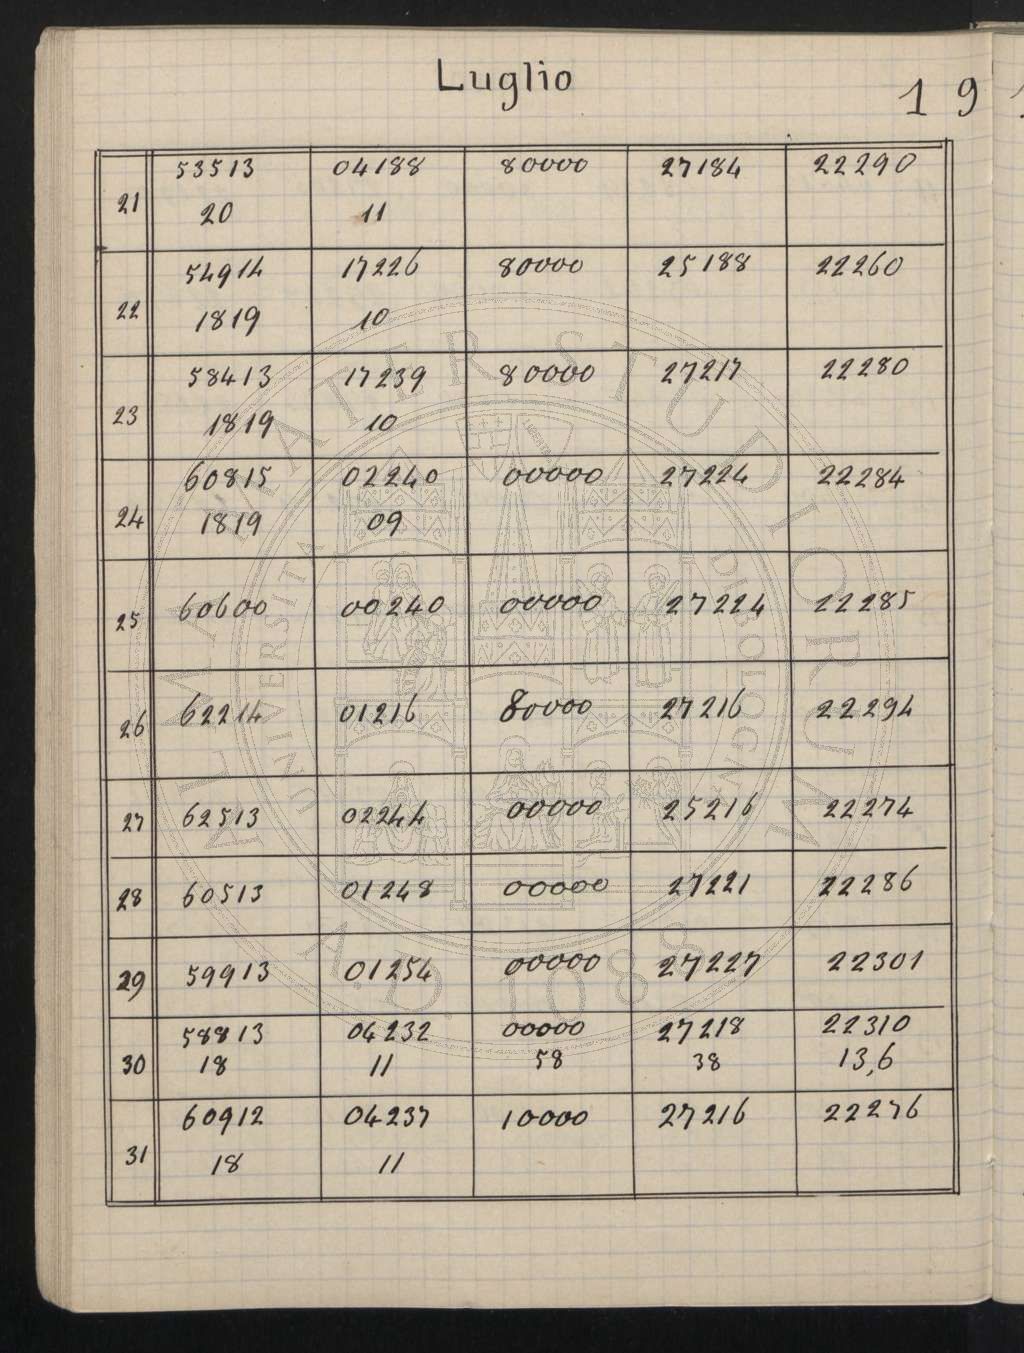 Luglio
1 9
21 53513 04188 80000 27184 22290
20 11
22 54914 17226 80000 25188 22260
1819 10
23 58413 17239 80000 27217 22280
1819 10
24 60815 02240 00000 27224 22284
1819 09
25 60600 00240 00000 27224 22285
26 62214 01216 80000 27216 22294
27 62513 02244 00000 25216 22274
28 60513 01248 00000 27221 22286
29 59913 01254 00000 27227 22301
30 58813 04232 00000 27218 22310
18 11 58 38 13,6
31 60912 04237 10000 27216 22276
18 11
ALMA MATER STUDIORUM
UNIVERSITÀ DI BOLOGNA
A.D. 1088